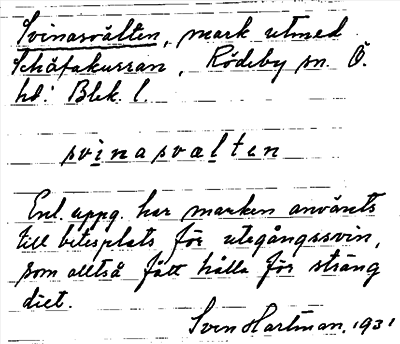 Svinasvälten, mark utmed
Schäfakurran, Rödeby sn. Ö.
hd. Blek. l.
svinasvalten
Enl. uppg. har marken använts
till betesplats för utegångssvin,
som alltså fått hålla för sträng
diet.
Sven Hartman, 1931